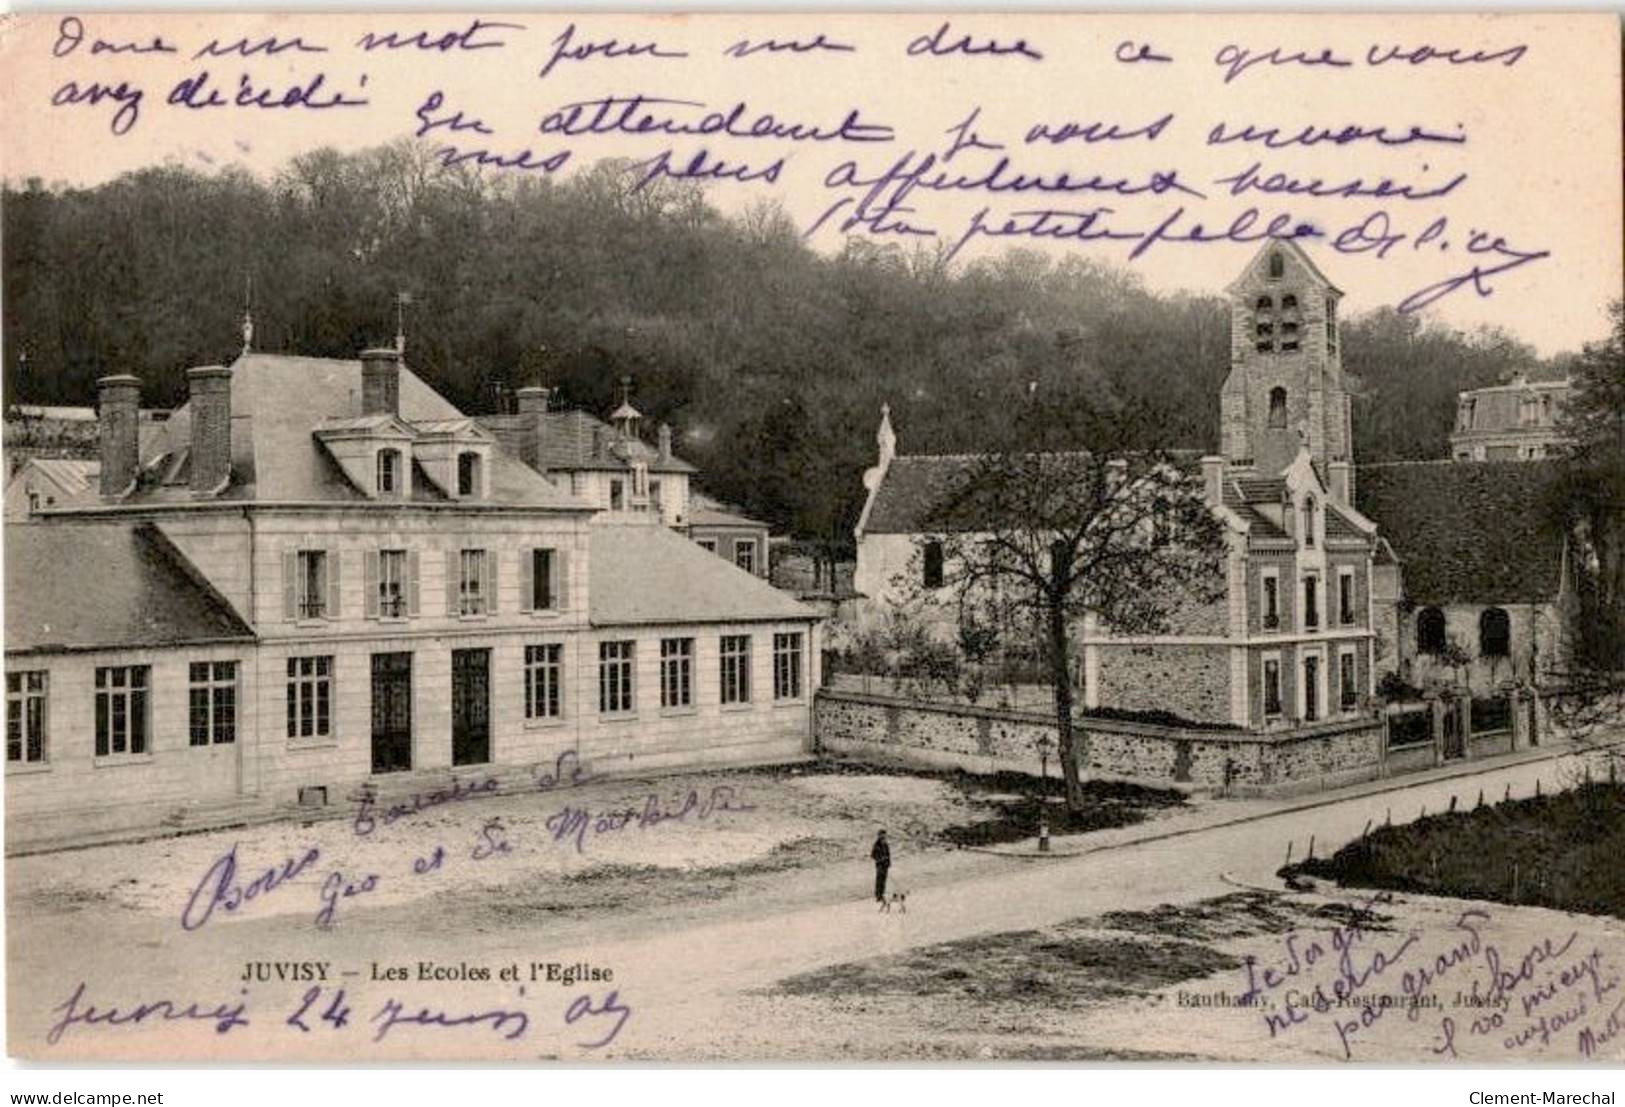 Donc un mot pour me dire ce que vous
avez décidé En attendant je vous envoie
mes plus affectueux baisers
Ta petite fille
Bons baisers de
Geo et de Mathilde
JUVISY — Les Ecoles et l'Eglise
Bauthamy, Café-Restaurant, Juvisy
Juvisy 24 Juin 09
ne sera
pas grand
chose
il va mieux
aujourd'hui
delcampe.net
Clement-Marechal